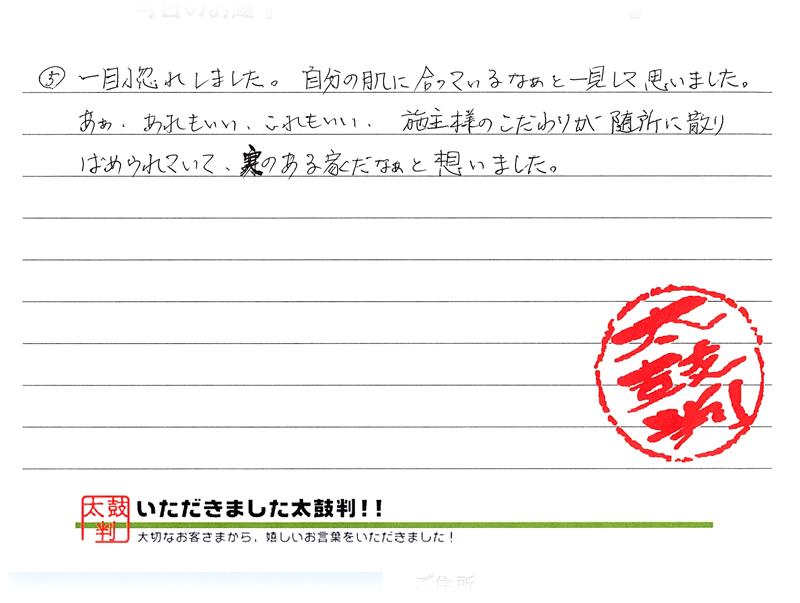 今日のお題
⑤ 一目惚れしました。自分の肌に合っているなぁと一見して思いました。
あぁ、あれもいい、これもいい、施主様のこだわりが随所に散り
ばめられていて、実のある家だなぁと想いました。
太鼓判
太鼓判
いただきました太鼓判!!
大切なお客さまから、嬉しいお言葉をいただきました!
ご住所